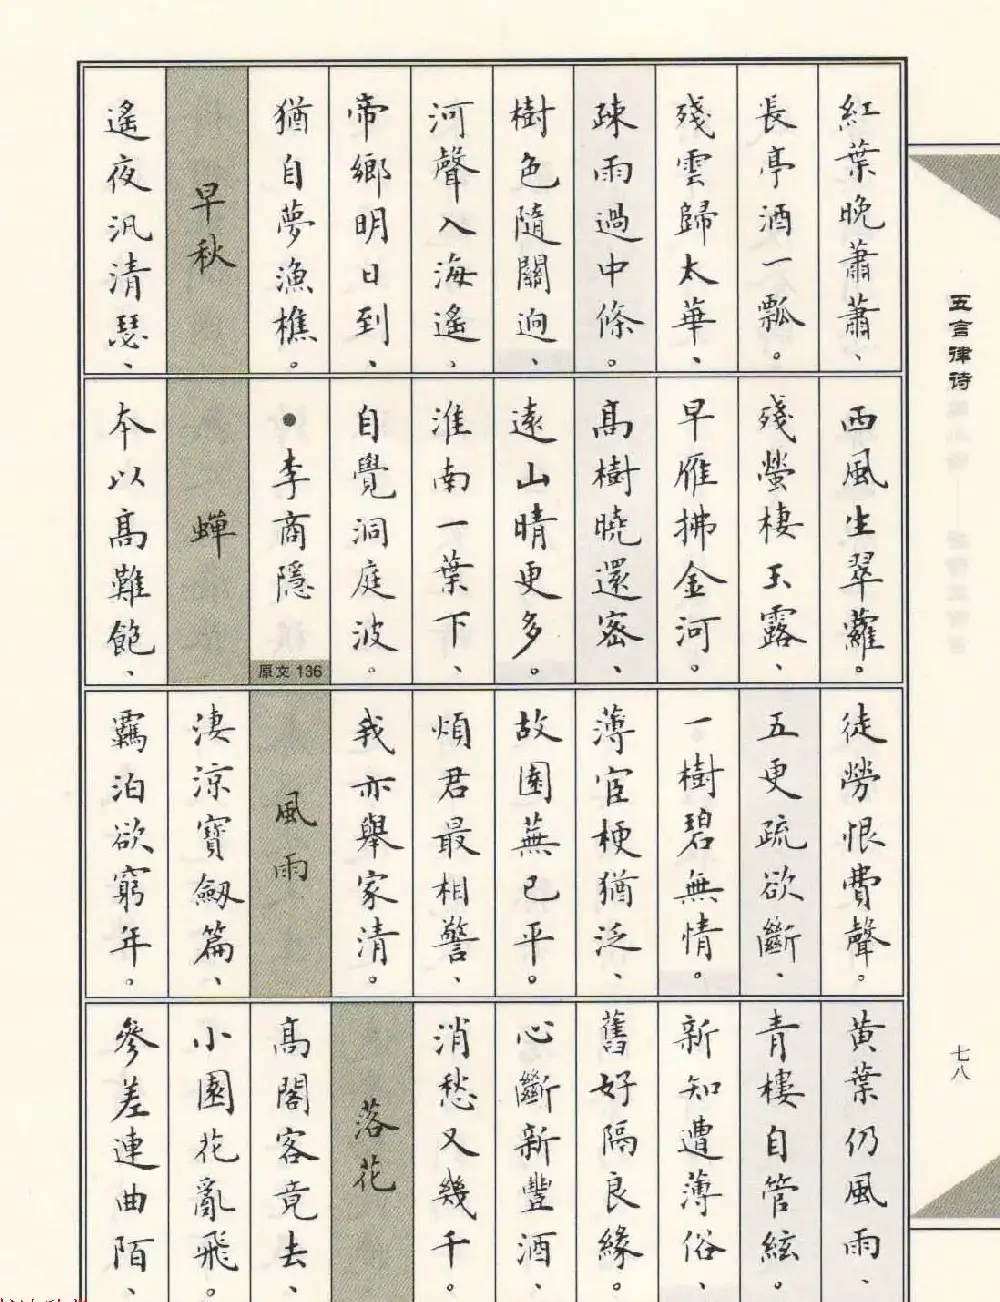 紅葉晚蕭蕭、
長亭酒一瓢。
殘雲歸太華、
疎雨過中條。
樹色隨關迥、
河聲入海遙、
帝鄉明日到、
猶自夢漁樵。
早秋
遙夜汎清瑟、
西風生翠蘿。
殘螢棲玉露、
早雁拂金河。
高樹曉還密、
遠山晴更多。
淮南一葉下、
自覺洞庭波。
●李商隱
原文 136
蟬
本以高難飽、
徒勞恨費聲。
五更疏欲斷、
一樹碧無情。
薄宦梗猶泛、
故園蕪已平。
煩君最相警、
我亦舉家清。
風雨
淒涼寶劍篇、
羈泊欲窮年。
黃葉仍風雨、
青樓自管絃。
新知遭薄俗、
舊好隔良緣。
心斷新豐酒、
消愁又幾千。
落花
高閣客竟去、
小園花亂飛。
參差連曲陌、
五言律诗
七八